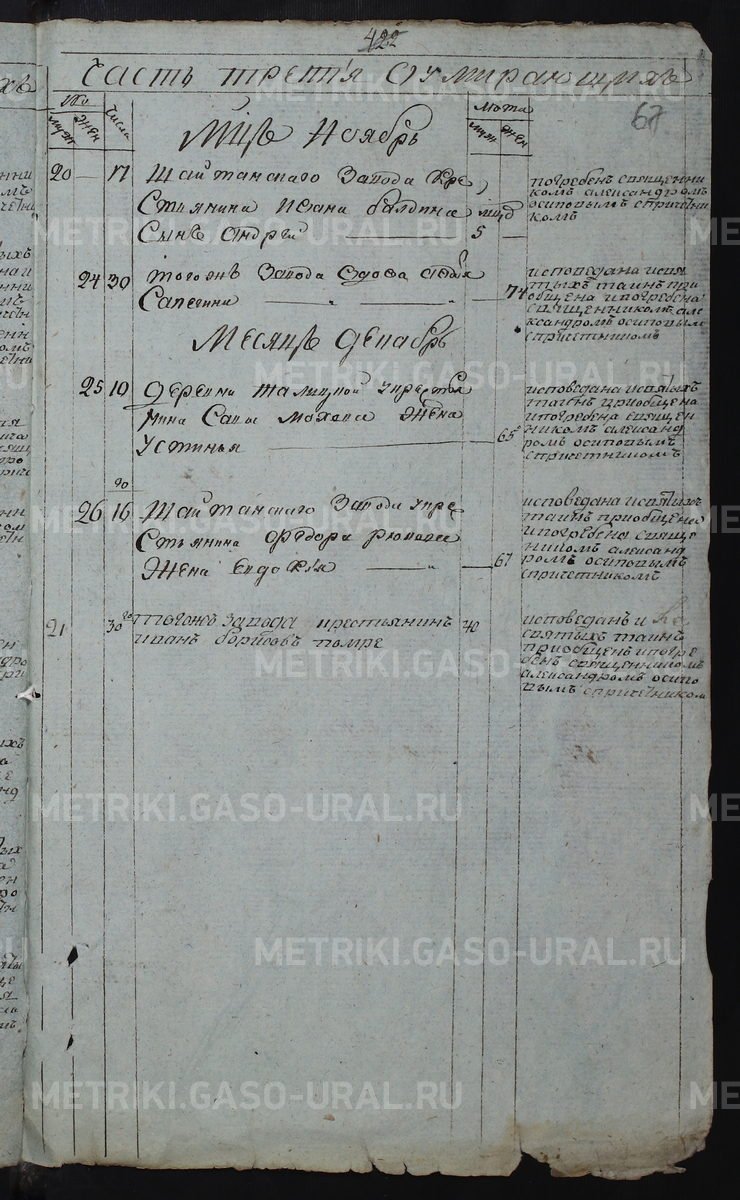 422
Часть третiя оумирающихъ
67
No
муж
жен
Числа
Лѣта
муж
жен
Мцъ Ноябрь
20 — 17 Шайтанскаго Завода кре
стьянина Ивана
Сынъ Андрей — 5
погребенъ священни
комъ александромъ
осиповымъ спричетни
комъ
24 30 тогожъ Завода вдова
Сапегина — 74
исповедана испя
тыхъ таинъ при
общена ипогребена
священникомъ але
ксандромъ осиповымъ
спричетникомъ
Месяцъ Декабрь
25 10 деревни талицкой укрестья
нина Савы мохева Жена
устинья — 65
исповедана испятыхъ
таинъ приобщена
ипогребена священ
никомъ александ
ромъ осиповымъ
спричетникомъ
го
26 16 Шайтанскаго Завода укре
стьянина Федора
Жена Евдокѣя — 67
исповедана испятыхъ
таинъ приобщена
ипогребена священ
никомъ александ
ромъ осиповымъ
спричетникомъ
21 30 го тогожъ завода крестьянинъ 40
иванъ помре
исповеданъ и
святыхъ таинъ
приобщенъ ипогре
бенъ священникомъ
александромъ осипо
вымъ спричетникомъ
METRIKI.GASO-URAL.RU